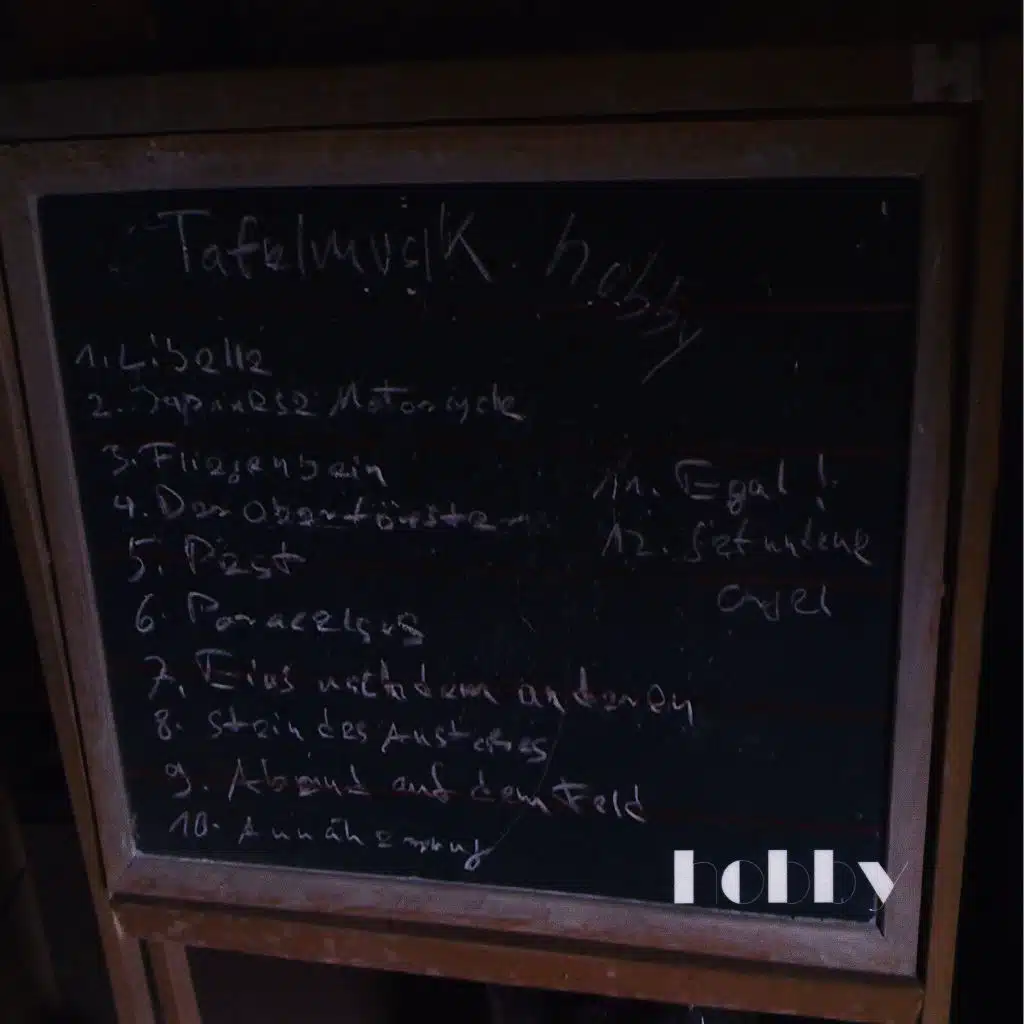 Tafelmusik. hobby
1. Libelle
2. Japanese Motorcycle
3. Fliegenbein
4. Der Oberförster
5. Pest
6. Paracelsus
7. Eins nach dem anderen
8. Stein des Anstoßes
9. Abend auf dem Feld
10. Annäherung
11. Egal!
12. Gefundene
Orgel
hobby